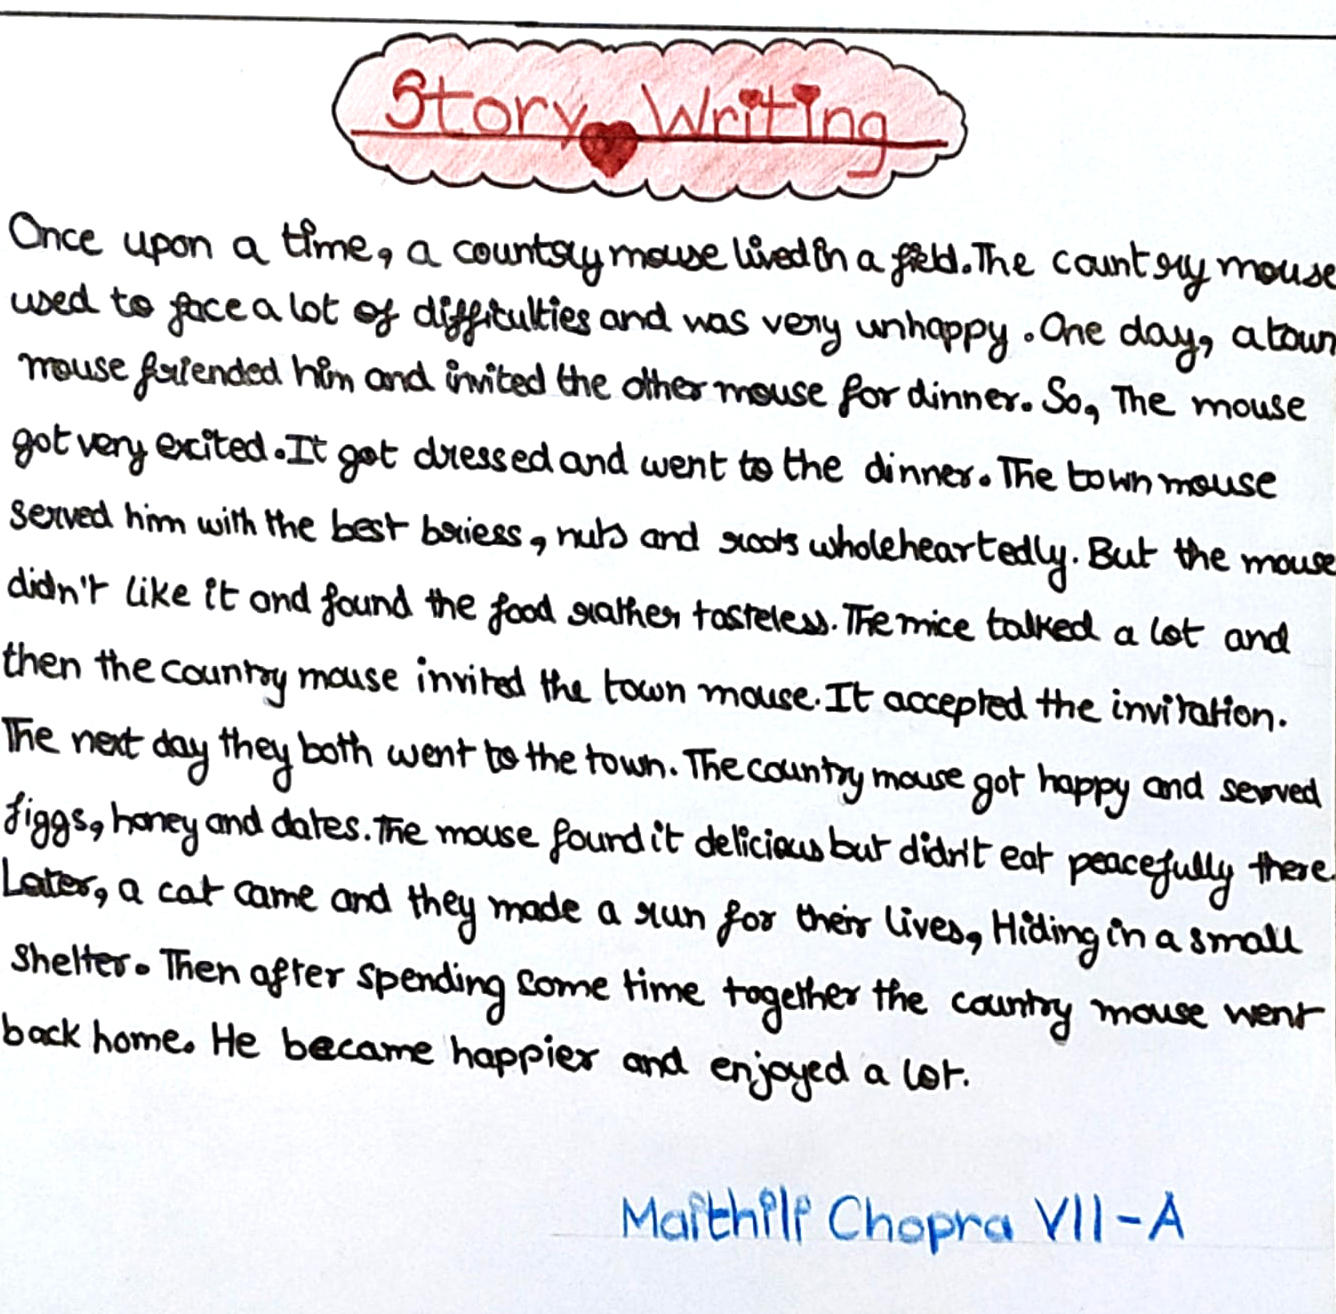 Story Writing
Once upon a time, a country mouse lived in a field. The country mouse
used to face a lot of difficulties and was very unhappy. One day, a town
mouse friended him and invited the other mouse for dinner. So, The mouse
got very excited. It got dressed and went to the dinner. The town mouse
served him with the best briess, nuts and roots wholeheartedly. But the mouse
didn't like it and found the food rather tasteless. The mice talked a lot and
then the country mouse invited the town mouse. It accepted the invitation.
The next day they both went to the town. The country mouse got happy and served
figgs, honey and dates. The mouse found it delicious but didn't eat peacefully there.
Later, a cat came and they made a run for their lives, Hiding in a small
shelter. Then after spending some time together the country mouse went
back home. He became happier and enjoyed a lot.
Maithili Chopra VII-A